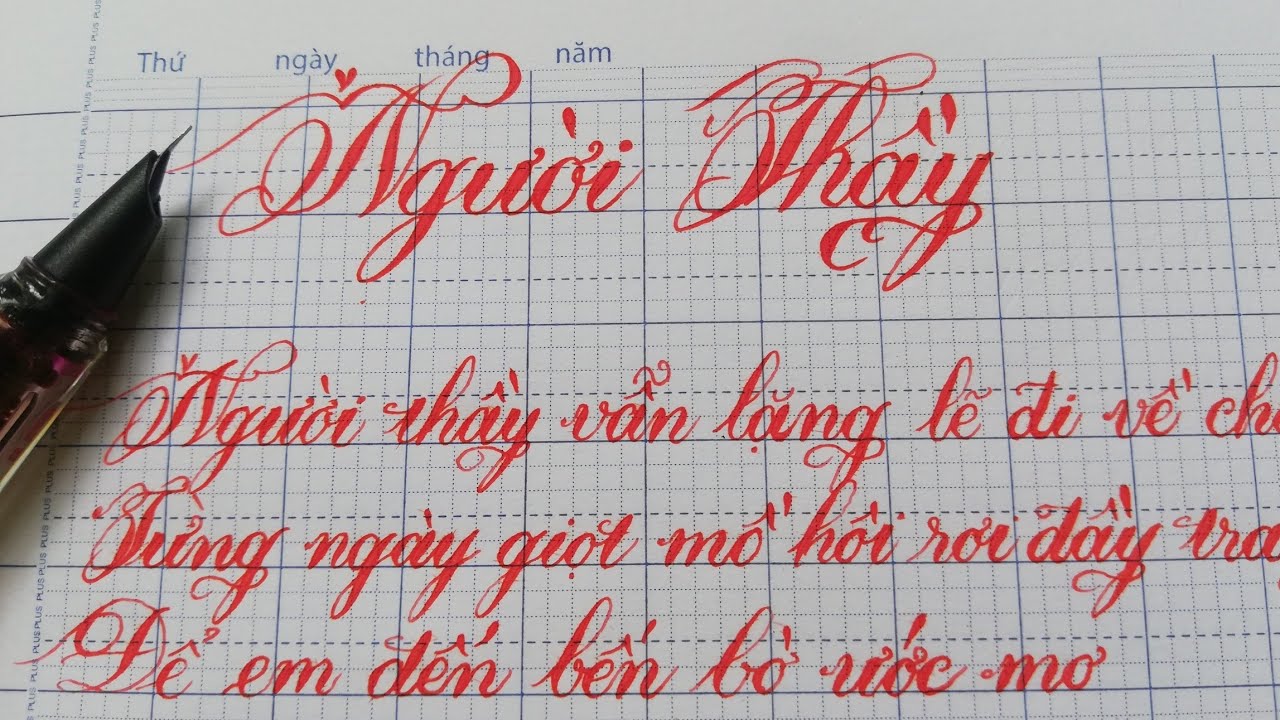 Thứ ngày tháng năm
Người Thầy
Người thầy vẫn lặng lẽ đi về
Từng ngày giọt mồ hôi rơi đầy
Để em đến bến bờ ước mơ
PLUS PLUS PLUS PLUS PLUS PLUS